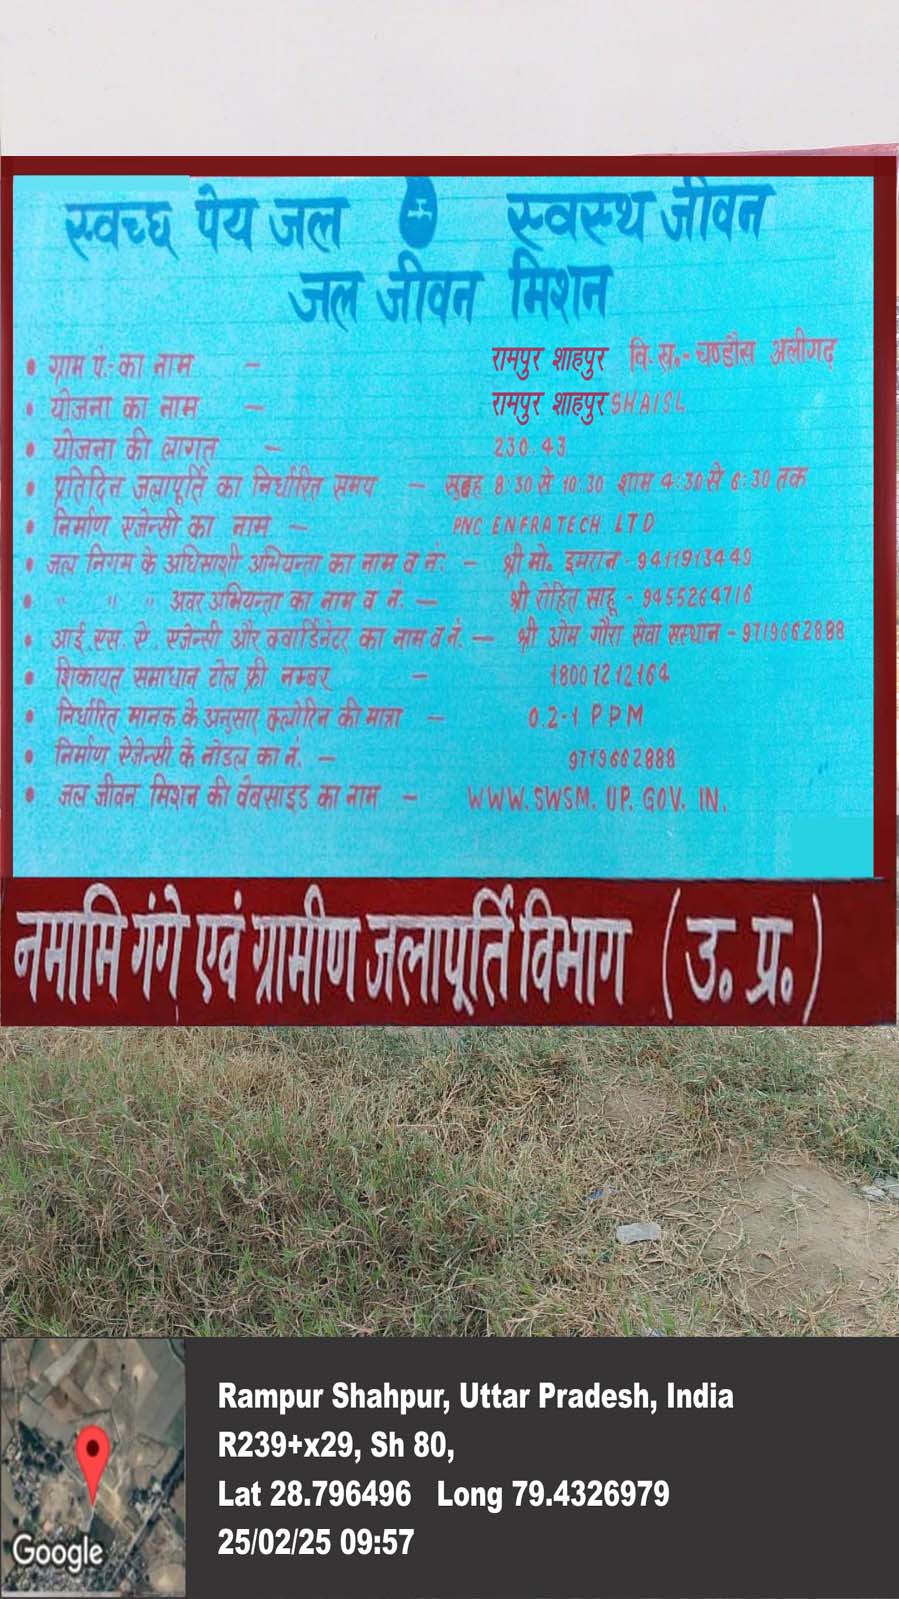 स्वच्छ पेय जल स्वस्थ जीवन
जल जीवन मिशन
• ग्राम पं.- का नाम - रामपुर शाहपुर वि. ख.- चण्डौस अलीगढ़
• योजना का नाम - रामपुर शाहपुर SHAISL
• योजना की लागत - 230.43
• प्रतिदिन जलापूर्ति का निर्धारित समय - सुबह 8:30 से 10:30 शाम 4:30 से 6:30 तक
• निर्माण एजेन्सी का नाम - PNC ENFRATECH LTD
• जल निगम के अधिसाशी अभियन्ता का नाम व नं: - श्री मो. इमरान - 9411913449
• " " " अवर अभियन्ता का नाम व नं. - श्री रोहित साहू - 9455264716
• आई.एस.ऐ. एजेन्सी और क्वार्डिनेटर का नाम व नं. - श्री ओम गौरा सेवा सस्थान - 9719662888
• शिकायत समाधान टोल फ्री नम्बर - 18001212164
• निर्धारित मानक के अनुसार क्लोरिन की मात्रा - 0.2-1 PPM
• निर्माण ऐजेन्सी के नोडल का नं. - 9719662888
• जल जीवन मिशन की वेबसाइड का नाम - WWW.SWSM.UP.GOV.IN.
नमामि गंगे एवं ग्रामीण जलापूर्ति विभाग (उ. प्र.)
Rampur Shahpur, Uttar Pradesh, India
R239+x29, Sh 80,
Lat 28.796496 Long 79.4326979
25/02/25 09:57
Google